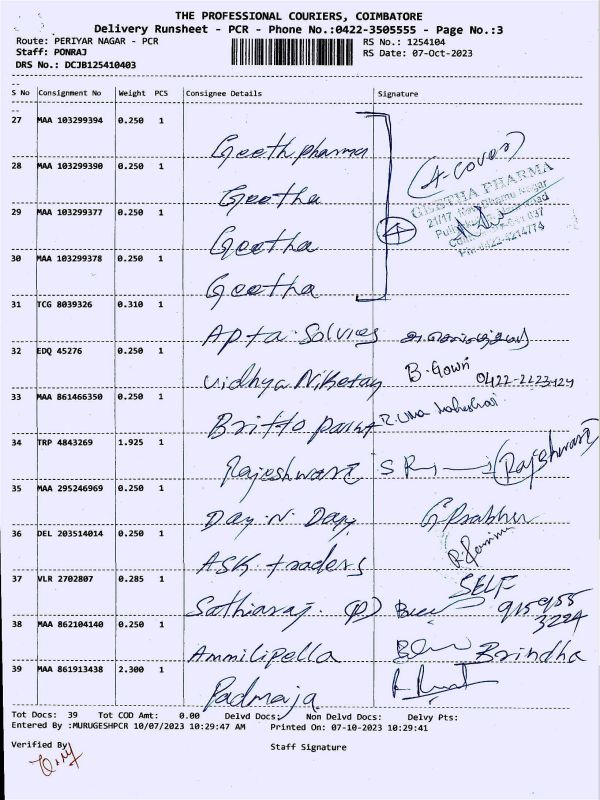 THE PROFESSIONAL COURIERS, COIMBATORE
Delivery Runsheet - PCR - Phone No.:0422-3505555 - Page No.:3
Route: PERIYAR NAGAR - PCR
RS No.: 1254104
Staff: PONRAJ
RS Date: 07-Oct-2023
DRS No.: DCJB125410403
S No Consignment No Weight PCS Consignee Details Signature
27 MAA 103299394 0.250 1
Geeth pharma
(4-cover)
28 MAA 103299390 0.250 1
GEETHA PHARMA
Geetha
29 MAA 103299377 0.250 1
Geetha
4
30 MAA 103299378 0.250 1
Ph:0422-4214774
Geetha
31 TCG 8039326 0.310 1
Apta Solvies
32 EDQ 45276 0.250 1
Vidhya Niketan B. Gowri
33 MAA 861466350 0.250 1
Britto paint R. Uma Maheshwari
34 TRP 4843269 1.925 1
Rajeshwari Rajeshwari
35 MAA 295246969 0.250 1
Day N Day G Prabhu
36 DEL 203514014 0.250 1
ASK traders
37 VLR 2702807 0.285 1
SELF
Sathiaraj. (P) 915 9955
3224
38 MAA 862104140 0.250 1
Ammilipella Brindha
39 MAA 861913438 2.300 1
Padmaja
Tot Docs: 39 Tot COD Amt: 0.00 Delvd Docs: Non Delvd Docs: Delvy Pts:
Entered By :MURUGESHPCR 10/07/2023 10:29:47 AM Printed On: 07-10-2023 10:29:41
Verified By Staff Signature